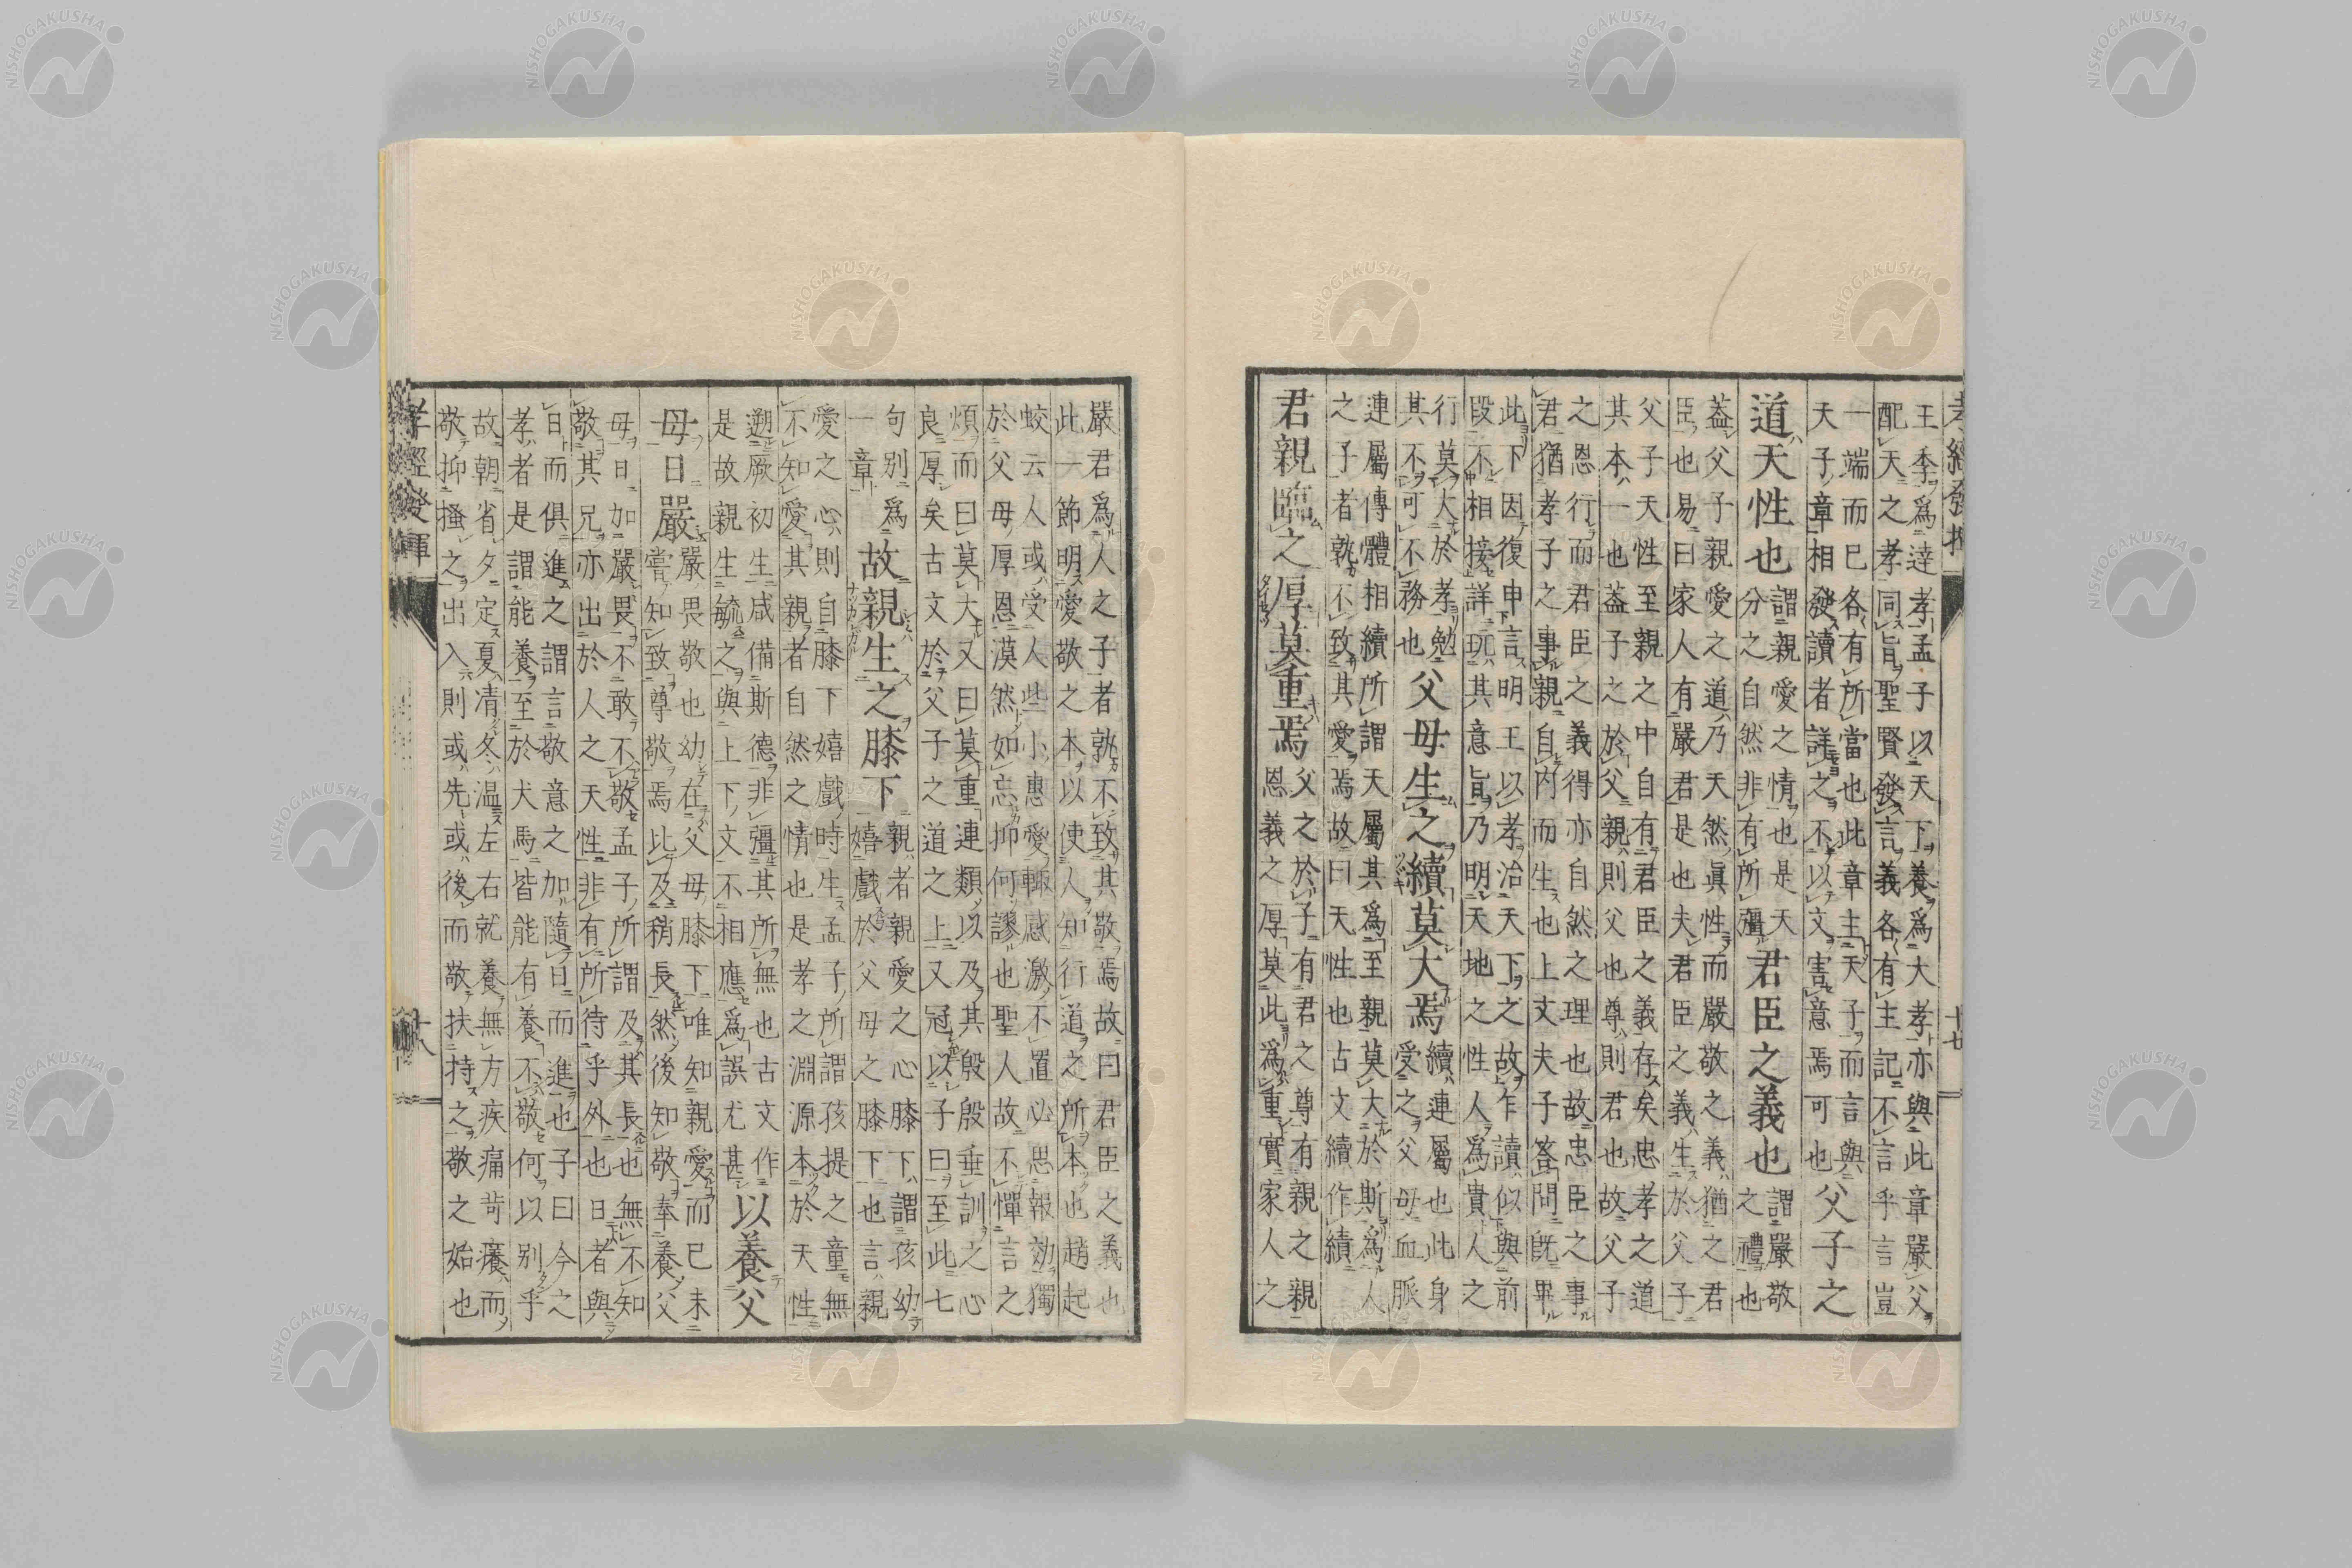 孝經發揮　十七
王季爲達孝孟子以天下養爲大孝亦與此章嚴父
配天之孝同旨聖賢發言義各有主記不言乎言豈
一端而已各有所當也此章主天子而言與
天子章相發讀者詳之不以文害意焉可也
父子之
道天性也
謂親愛之情也是天
分之自然非有所彊
君臣之義也
謂嚴敬
之禮也
葢父子親愛之道乃天然眞性而嚴敬之義猶之君
臣也易曰家人有嚴君是也夫君臣之義生於父子
父子天性至親之中自有君臣之義存矣忠孝之道
其本一也葢子之於父親則父也尊則君也故父子
之恩行而君臣之義得亦自然之理也故忠臣之事
君猶孝子之事親自內而生也上文夫子答問旣畢
此下因復申言明王以孝治天下之故乍讀似與前
段不相接詳玩其意旨乃明天地之性人爲貴人之
行莫大於孝勉
其不可不務也
父母生之續莫大焉
續連屬也此身
受之父母血脈
連屬傳體相續所謂天屬其爲至親莫大於斯爲人
之子者孰不致其愛焉故曰天性也古文續作績
君親臨之厚莫重焉
父之於子有君之尊有親之親
恩義之厚莫此爲重實家人之
嚴君爲人之子者孰不致其敬焉故曰君臣之義也
此一節明愛敬之本以使人知行道之所本也趙起
蛟云人或受人些小惠愛輙感激不置必思報効獨
於父母厚恩漠然如忘抑何謬也聖人故不憚言之
煩而曰莫大又曰莫重連類以及其殷殷垂訓之心
良厚矣古文於父子之道之上又冠以子曰至此七
句別爲
一章
故親生之膝下
親者親愛之心膝下謂孩幼
嬉戲於父母之膝下也言親
愛之心則自膝下嬉戲時生孟子所謂孩提之童無
不知愛其親者自然之情也是孝之淵源本於天性
遡厥初生咸備斯德非彊其所無也古文作
是故親生毓之與上下文不相應爲誤尤甚
以養父
母日嚴
嚴畏敬也幼在父母膝下唯知親愛而已未
嘗知致尊敬焉比及稍長然後知敬奉養父
母日加嚴畏不敢不敬孟子所謂及其長也無不知
敬其兄亦出於人之天性非有所待乎外也日者與
日而俱進之謂言敬意之加隨日而進也子曰今之
孝者是謂能養至於犬馬皆能有養不敬何以別乎
故朝省夕定夏凊冬温左右就養無方疾痛苛癢而
敬抑搔之出入則或先或後而敬扶持之敬之始也
孝經發揮　十八